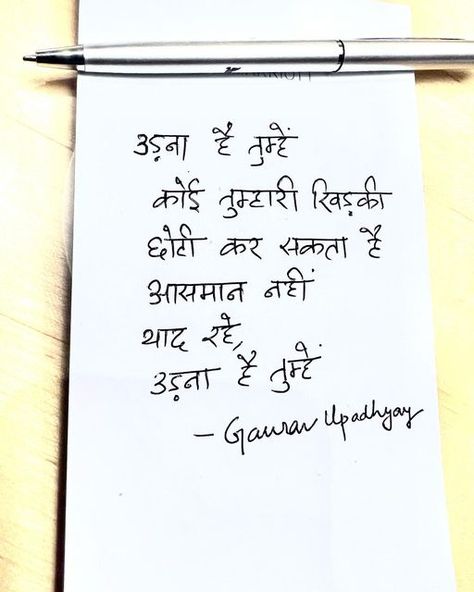 उड़ना है तुम्हें
कोई तुम्हारी खिड़की
छोटी कर सकता है
आसमान नहीं
याद रहे,
उड़ना है तुम्हें
– Gaurav Upadhyay